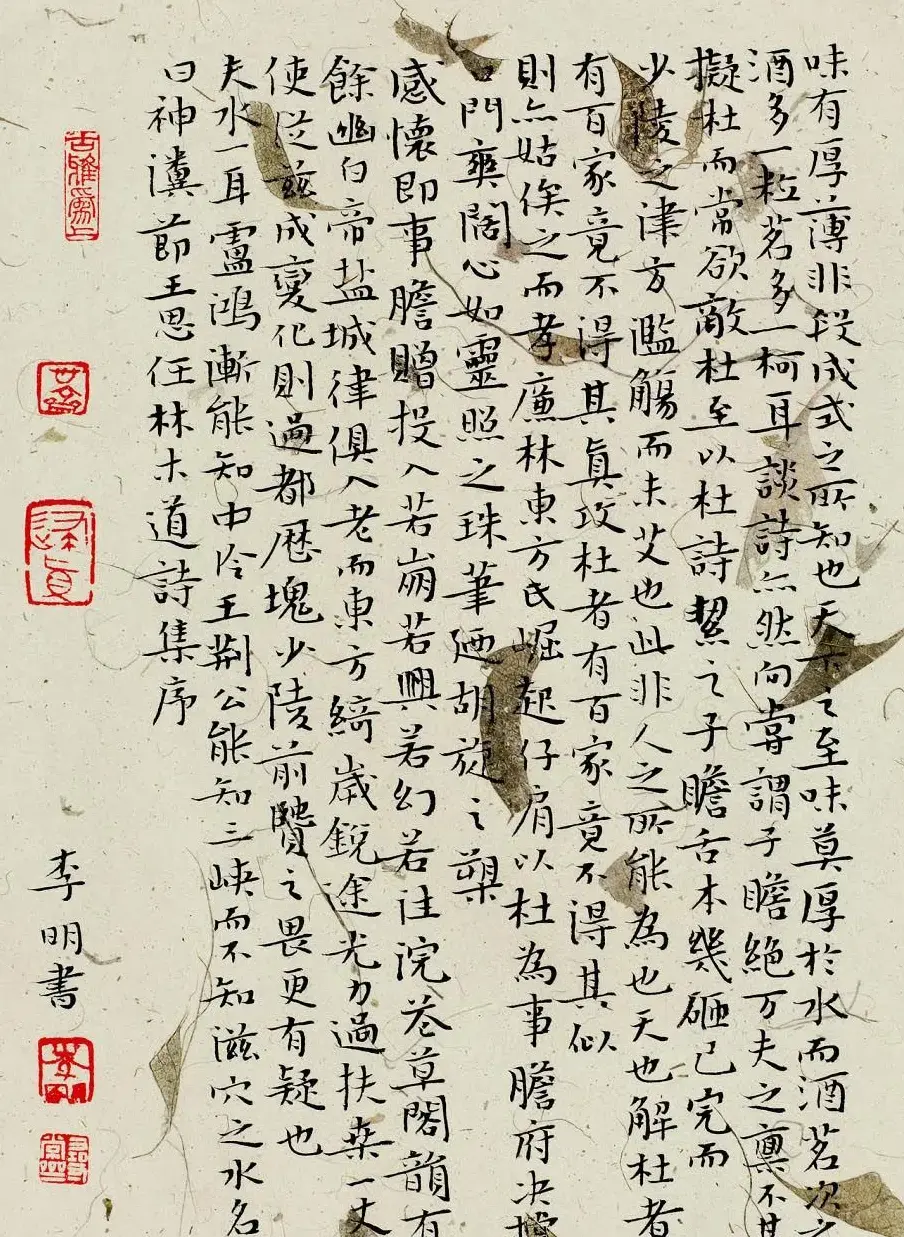 味有厚薄非段成式之所知也天下之至味莫厚於水而酒茗次之
酒多一粒茗多一柯耳談詩亦然向嘗謂子瞻絕万夫之稟不甘
擬杜而常欲敵杜至以杜詩絜之子瞻舌本幾砸已完而
少陵之津方濫觴而未艾也此非人之所能為也天也解杜者
有百家竟不得其真攻杜者有百家竟不得其似
則亦姑俟之而孝廉林東方氏崛起仔肩以杜為事膽府決
門爽闊心如靈照之珠筆廼胡旋之槊
感懷即事贍贈投入若崩若興若幻若注浣花草閣韻有
餘幽白帝盐城律俱入老而東方綺歲銳途光力過扶桑一丈
使從茲成變化則過都歷塊少陵前賢之畏更有疑也
夫水一耳盧鴻漸能知中泠王荊公能知三峽而不知滋穴之水名
曰神瀵莭王思任林木道詩集序
李明書